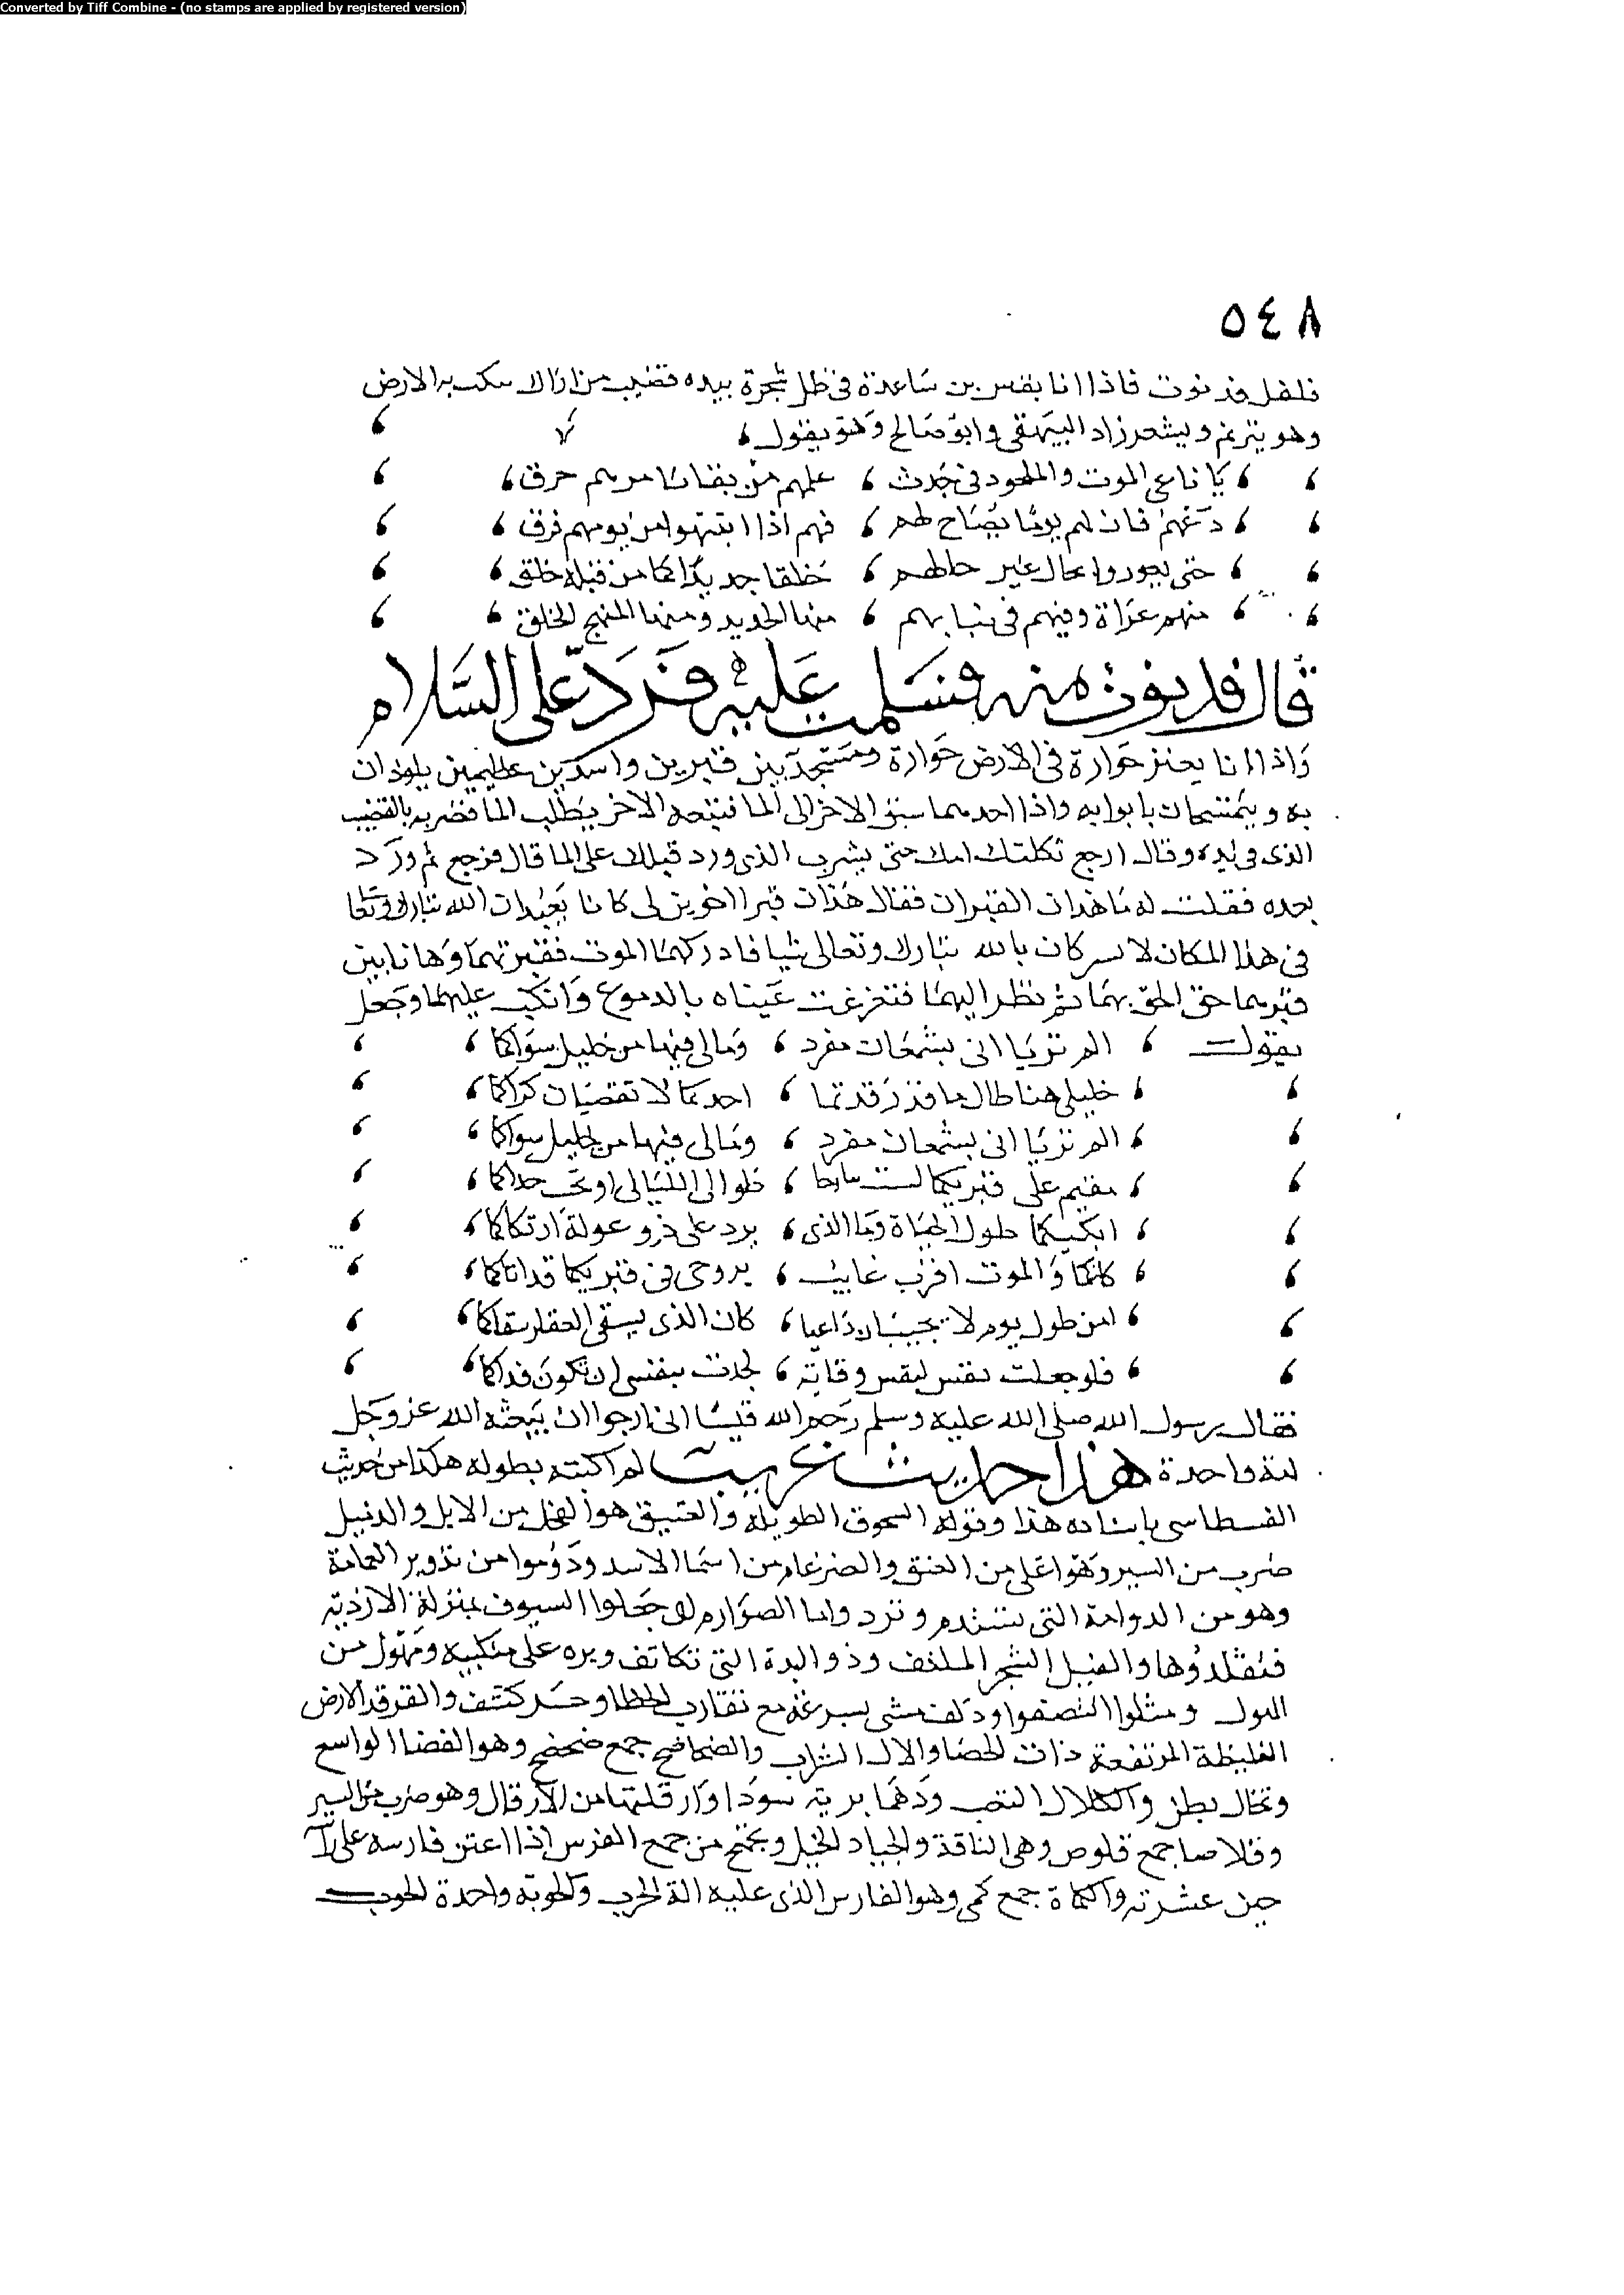 Converted by Tiff Combine - (no stamps are applied by registered version)
٥٤٨
فاذا انا بقس بن ساعدة في ظل شجرة بيده قضيب من اراك ينكت به الارض
وهو يترنم ويشعر زاد البيهقي وابو صالح وهو يقول
يا ناعي الموت والملحود في جدث عليهم من بقايا خرق
دعهم فان لهم يوما يصاح لهم فهم اذا انتبهوا من يومهم فرق
حتى يعودوا بحال غير حالهم خلقا جديدا كما من قبله خلقوا
منهم عراة ومنهم في ثيابهم منها الجديد ومنها المنهج الخلق
قال فدنوت منه فسلمت عليه فرد علي السلام
واذا انا بعين خوارة في الارض خوارة ومسجد بين قبرين واسدين عظيمين يلوذان
به ويتمسحان بابوابه واذا احدهما سبق الاخر الى الما فتبعه الاخر يطلب الما فضربه بالقضيب
الذي في يده وقال ارجع ثكلتك امك حتى يشرب الذي ورد قبلك على الما قال فرجع ثم ورد
بعده فقلت له ما هذان القبران فقال هذان قبرا اخوين لي كانا يعبدان الله تبارك وتعا
في هذا المكان لا يشركان بالله تبارك وتعالى شيا فادركهما الموت فقبرتهما وها انا بين
قبريهما حتى الحق بهما ثم نظر اليهما فتغرغرت عيناه بالدموع وانكب عليهما وجعل
يقول الم تريا اني بسمعان مفرد ومالي فيها من خليل سواكما
خليلي هبا طال ما قد رقدتما اجدكما لا تقضيان كراكما
الم تريا اني بسمعان مفرد ومالي فيها من خليل سواكما
مقيم على قبريكما لست بارحا طوال الليالي او يجيب صداكما
ابكيكما طول الحياة وما الذي يرد على ذي عولة ان بكاكما
كانكما والموت اقرب غايب بروحي في قبريكما قد اتاكما
امن طول يوم لا تجيبان داعيا كان الذي يسقي العقار سقاكما
فلو جعلت نفس لنفس وقاية لجدت بنفسي ان تكون فداكما
فقال رسول الله صلى الله عليه وسلم رحم الله قسا اني ارجو ان يبعثه الله عز وجل
امة واحدة هذا حديث غريب لم اكتبه بطوله هكذا من حديث
باسناده هذا وقوله السحوق الطويلة والعتيق هو الفحل من الابل والذميل
ضرب من السير وهو اعلى من العنق والضرغام من اسما الاسد ودوموا من تدوير العمامة
وهو من الدوامة التي تستدير وتردوا بالصوارم اي جعلوا السيوف بمنزلة الاردية
فتقلدوها والغيل الشجر الملتف وذو اللبدة التي تكاتف وبره على منكبيه ومهول من
الهول ومثلوا انتصفوا ودلف مشى بسرعة مع تقارب الخطا وحسر كشف والقرقد الارض
الغليظة المرتفعة ذات الحصا والال السراب والصحاصح جمع صحصح وهو الفضا الواسع
وتخال يظن والكلال التعب ودهما برية سودا وارقلتها من الارقال وهو ضرب من السير
وقلاصا جمع قلوص وهي الناقة والجياد الخيل وتجمح من جمح الفرس اذا اعتز فارسه على
حين عشرته والكماة جمع كمي وهو الفارس الذي عليه الة الحرب والحوبة واحدة الحوب